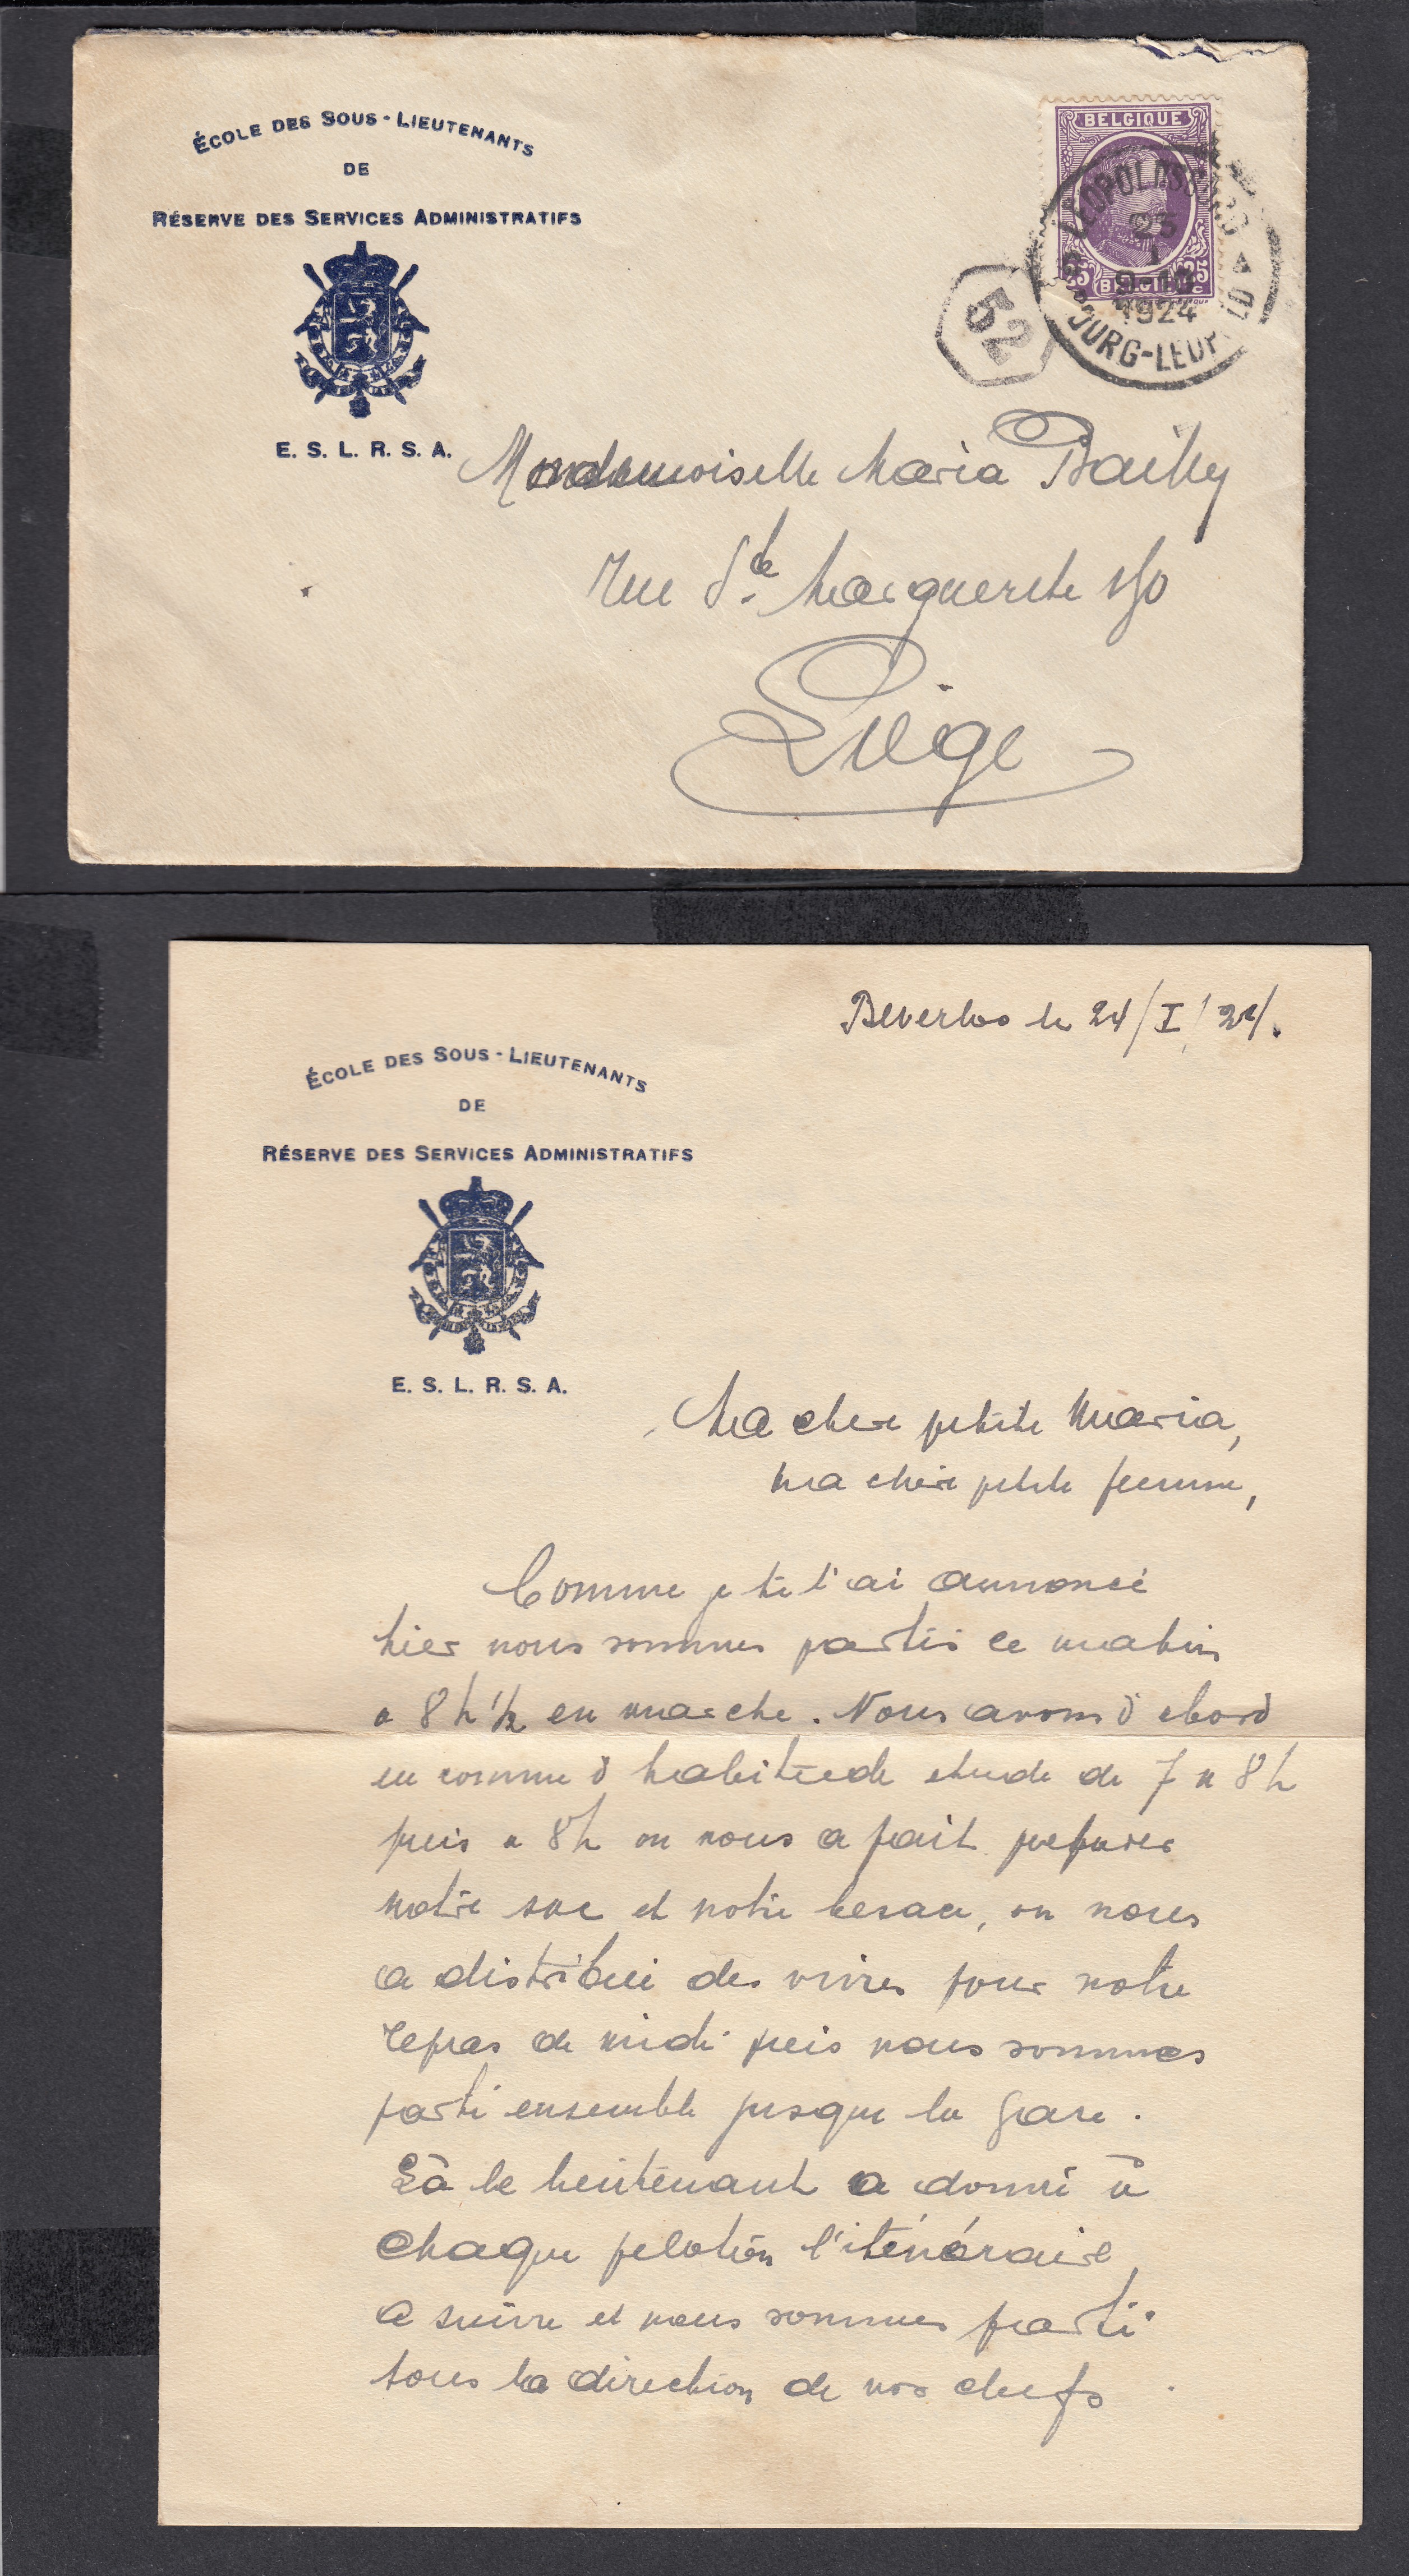 ÉCOLE DES SOUS-LIEUTENANTS
DE
RÉSERVE DES SERVICES ADMINISTRATIFS
E. S. L. R. S. A.
BELGIQUE
25 25
LEOPOLDSBURG
23
1
1924
BOURG-LEOP
52
Mademoiselle Maria Bailly
rue Ste Marguerite
Liège
Beverloo le 24/I/24.
ÉCOLE DES SOUS-LIEUTENANTS
DE
RÉSERVE DES SERVICES ADMINISTRATIFS
E. S. L. R. S. A.
Ma chere petite Maria,
ma chère petite femme,
Comme je te l'ai annoncé
hier nous sommes partis ce matin
a 8 h 1/2 en marche. Nous avons d'abord
eu comme d'habitude etude de 7 a 8 h
puis a 8 h on nous a fait preparer
notre sac et notre besace, on nous
a distribué des vivres pour notre
repas de midi puis nous sommes
parti ensemble jusque la gare.
Là le lieutenant a donné à
chaque peloton l'iténéraire
a suivre et nous sommes parti
sous la direction de nos chefs